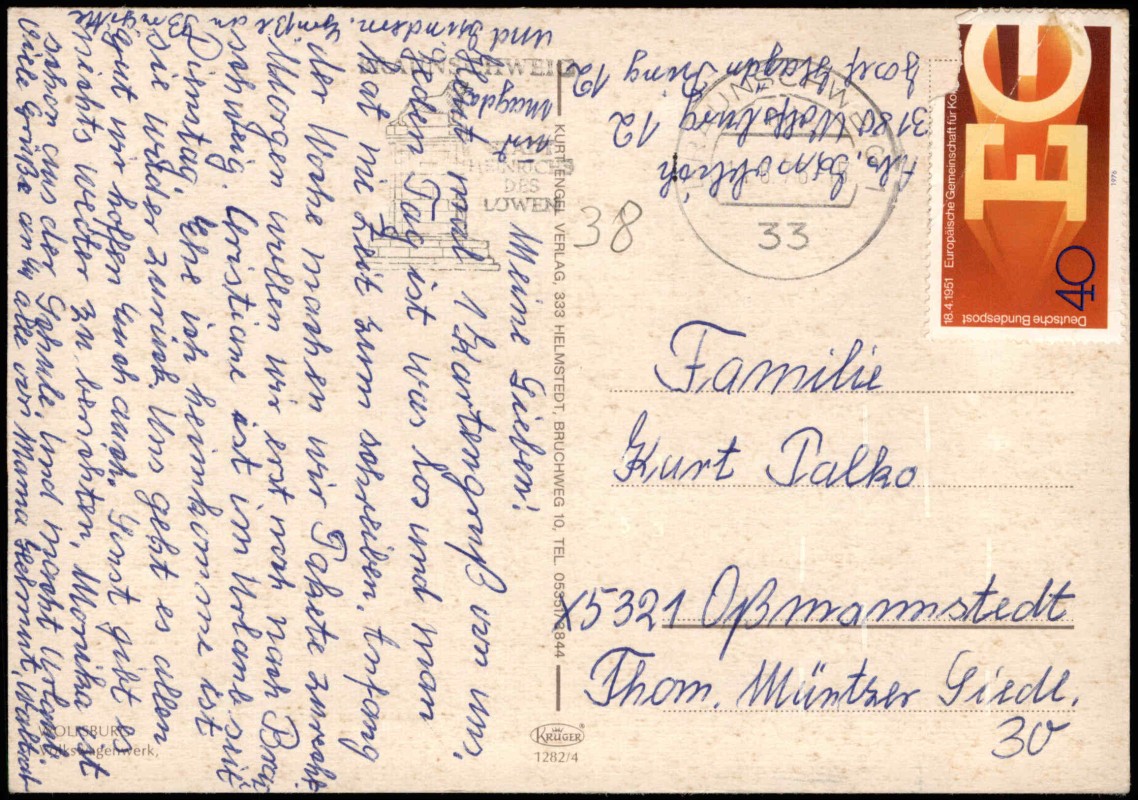 Meine Lieben!
Heut mal 1 Kartengruß von uns,
jeden Tag ist was los und man
hat nie Zeit zum schreiben, Anfang
der Woche machen wir Pakete zurecht
Morgen wollen wir erst noch nach Braun
schweig. Christiane ist im Urlaub seit
Dienstag. Ehe ich heimkomme ist
sie wieder zurück. Uns geht es allen
gut wir hoffen Euch auch. Sonst gibt es
nichts weiter zu berichten, Monika ist
schon aus der Schule und macht Urlaub
viele Grüße an alle von Mama Helmut,
und Kindern. Grüße an Brigitte
Magda
Abs.
3180 Wolfsburg 12
Josef Haydn Ring 12
38
BRAUNSCHWEIG
HEINRICHS
DES
LÖWEN
BRAUNSCHWEIG
33
18.4.1951 Europäische Gemeinschaft für Ko
EG
1976
40
Deutsche Bundespost
Familie
Kurt Palko
X5321 Oßmannstedt
Thom. Müntzer Siedl.
30
KURT ENGEL VERLAG, 333 HELMSTEDT, BRUCHWEG 10, TEL. 05351/3844
KRÜGER
1282/4
WOLFSBURG
Volkswagenwerk,